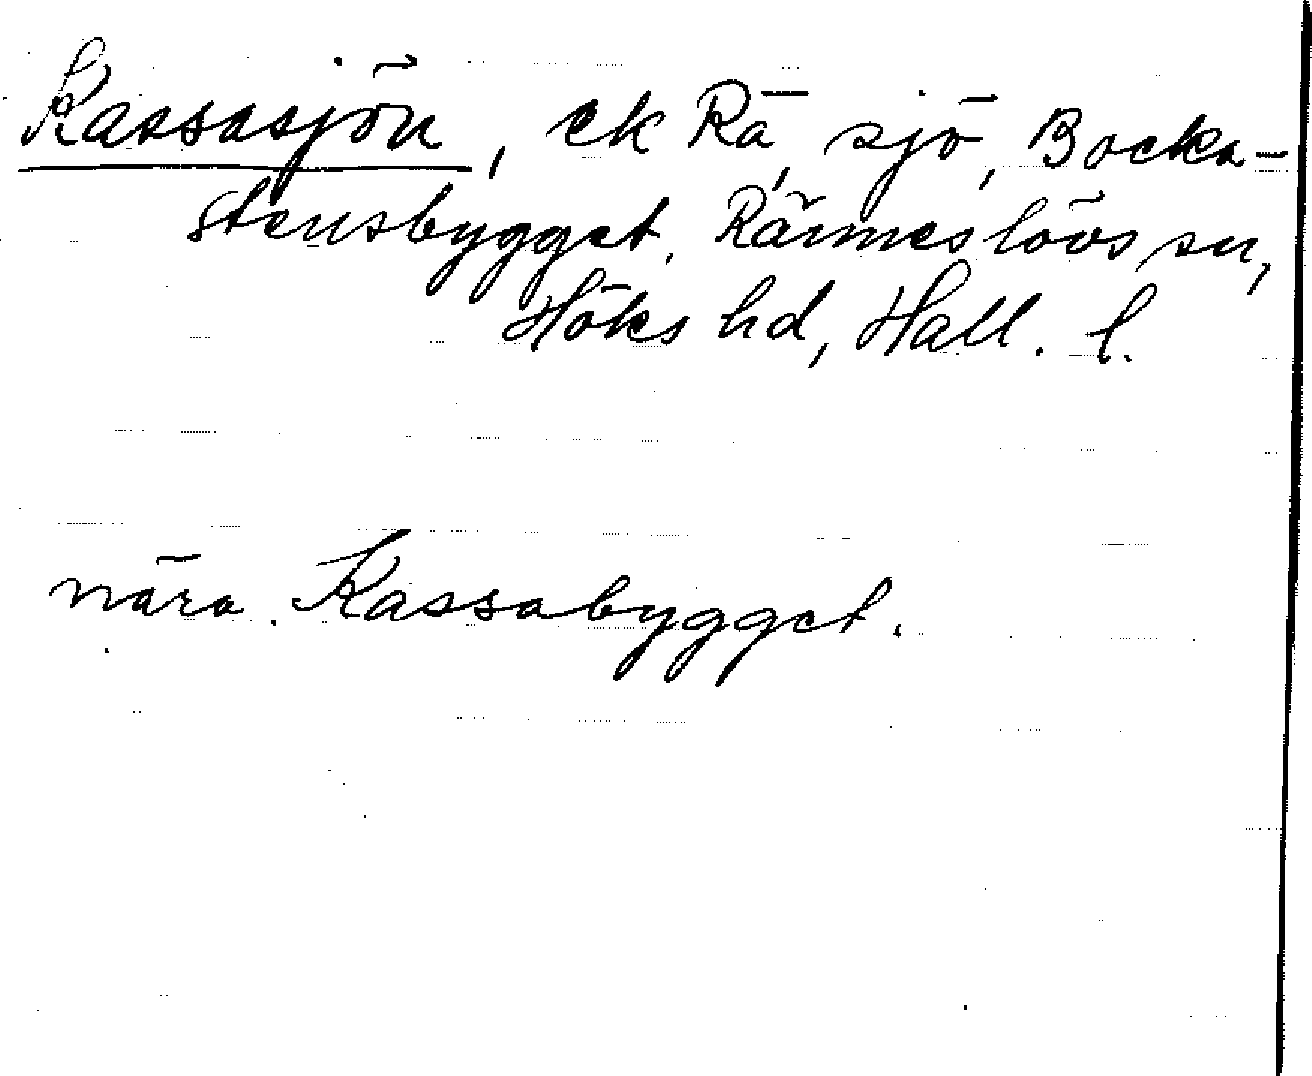 Kassasjön, ek Rä, sjö, Bocka-
stensbygget, Ränneslövs sn,
Höks hd, Hall. l.
nära Kassabygget.